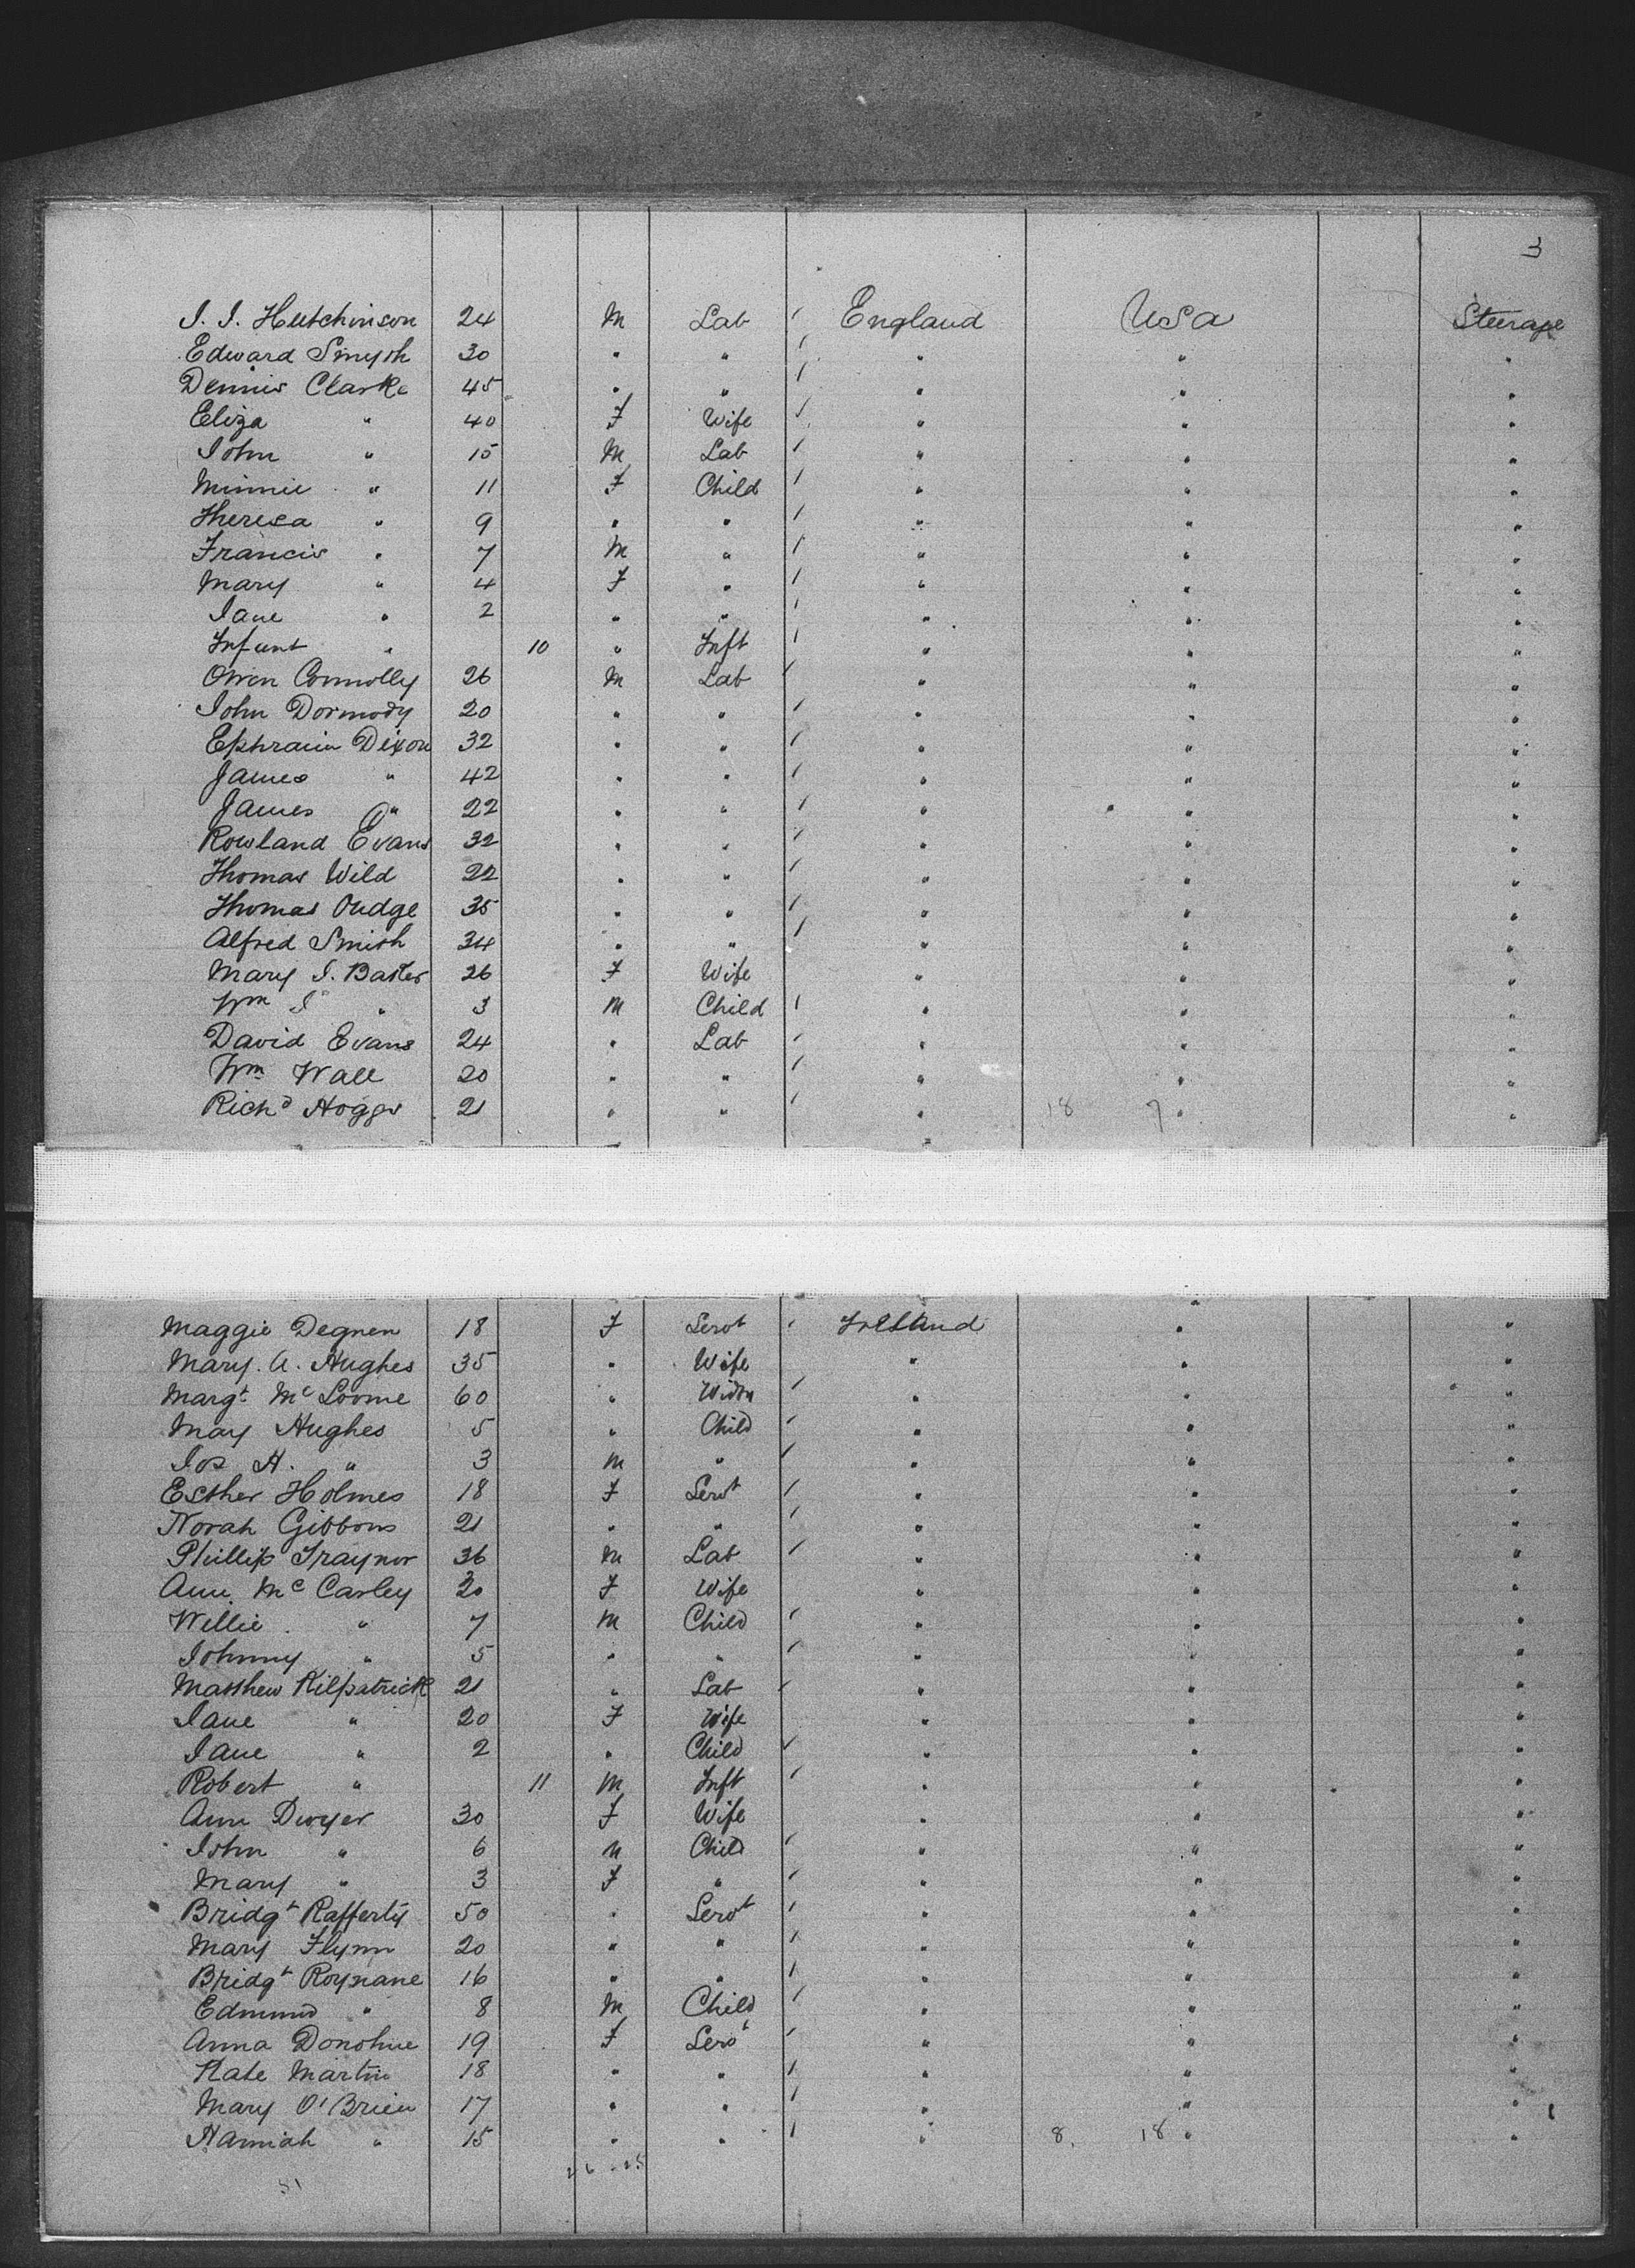 3
J. J. Hutchinson 24 M Lab England USa Steerage
Edward Smyth 30 " " " " "
Dennis Clarke 45 " " " " "
Eliza " 40 F Wife " " "
John " 15 M Lab " " "
Minnie " 11 F Child " " "
Theresa " 9 " " " " "
Francis " 7 M " " " "
Mary " 4 F " " " "
Jane " 2 " " " " "
Infant " 10 " Inft " " "
Owen Connolly 26 M Lab " " "
John Dormody 20 " " " " "
Ephraim Dixon 32 " " " " "
James " 42 " " " " "
James " 22 " " " " "
Rowland Evans 32 " " " " "
Thomas Wild 22 " " " " "
Thomas Oudge 35 " " " " "
Alfred Smith 34 " " " " "
Mary J. Baxter 26 F Wife " " "
Wm J " 3 M Child " " "
David Evans 24 " Lab " " "
Wm Wall 20 " " " " "
Richd Hoggs 21 " " " 18 7 " "
Maggie Degnen 18 F Servt Ireland " "
Mary. A. Hughes 35 " Wife " " "
Margt McLoome 60 " Widw " " "
May Hughes 5 " Child " " "
Jos H. " 3 M " " " "
Esther Holmes 18 F Servt " " "
Norah Gibbons 21 " " " " "
Phillip Traynor 36 M Lab " " "
Ann McCarley 30 F Wife " " "
Willie " 7 M Child " " "
Johnny " 5 " " " " "
Matthew Kilpatrick 21 " Lab " " "
Jane " 20 F Wife " " "
Jane " 2 " Child " " "
Robert " 11 M Inft " " "
Ann Dwyer 30 F Wife " " "
John " 6 M Child " " "
Mary " 3 F " " " "
Bridgt Rafferty 50 " Servt " " "
Mary Flynn 20 " " " " "
Bridgt Roynane 16 " " " " "
Edmund " 8 M Child " " "
Anna Donohue 19 F Servt " " "
Kate Martin 18 " " " " "
Mary O'Brien 17 " " " " "
Hannah " 15 " " " 8, 18 " "
51